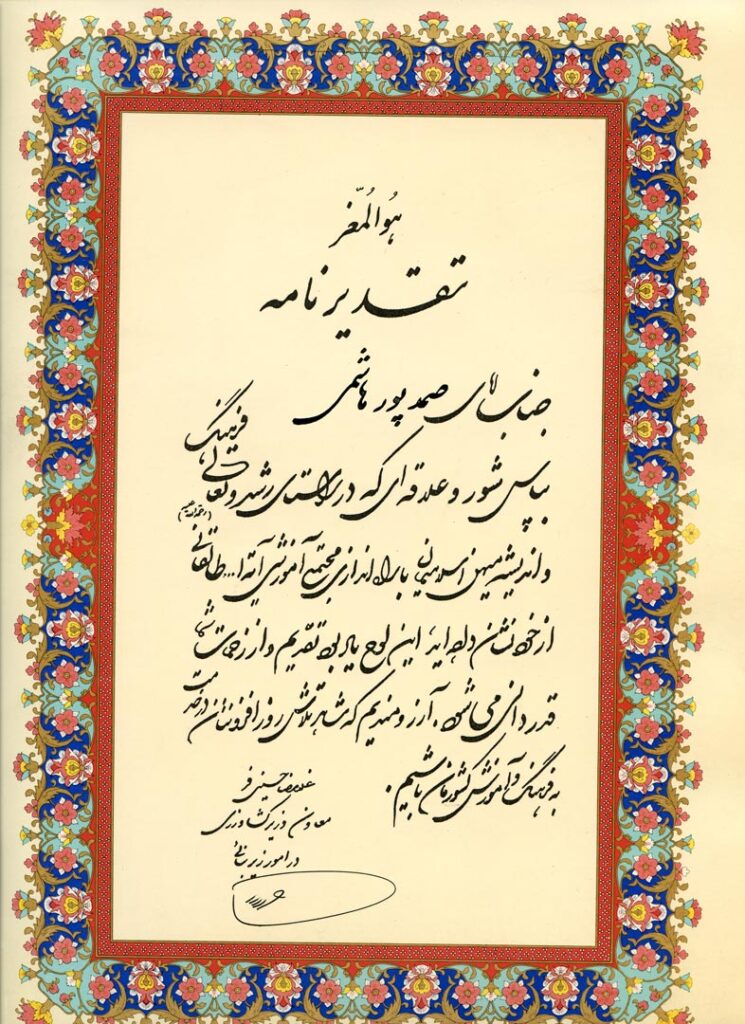 هُوَالمُعِّز
تقدیرنامه
جناب آقای صمد پورهاشمی
بپاس شور و علاقه‌ای که در راستای رشد و تعالی فرهنگ
و اندیشه میهن اسلامیمان با راه اندازی مجتمع آموزشی آیة ا... طالقانی (رحمة الله علیه)
از خود نشان داده اید، این لوح یادبود تقدیم و از زحمات شما
قدردانی می شود. آرزومندیم که شاهد تلاش روزافزونتان در خدمت
به فرهنگ و آموزش کشورمان باشیم.
غلامرضا حسینی فر
معاون وزیر کشاورزی
در امور زیربنائی